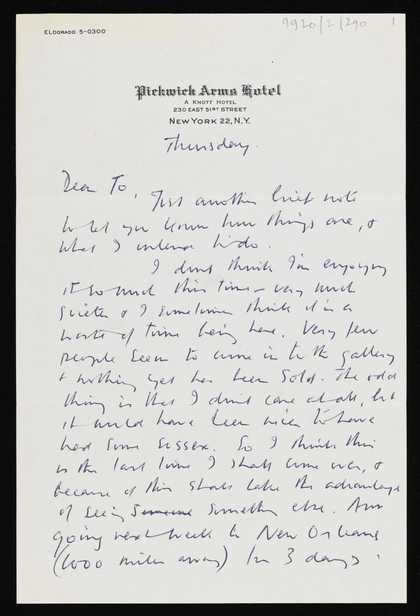 ELDORADO 5-0300
9920/2/290 1
Pickwick Arms Hotel
A KNOTT HOTEL
230 EAST 51ST STREET
NEW YORK 22, N.Y.
Thursday.
Dear To,
Just another brief note
to let you know how things are, &
what I intend to do.
I don't think I'm enjoying
it so much this time – very much
quieter & I sometimes think it is a
waste of time being here. Very few
people seem to come in to the gallery
& nothing yet has been sold. The odd
thing is that I don't care at all, but
it would have been nice to have
had some success. So I think this
is the last time I shall come over, &
because of this shall take the advantage
of seeing Someone something else. Am
going next week to New Orleans
(1000 miles away) for 3 days.